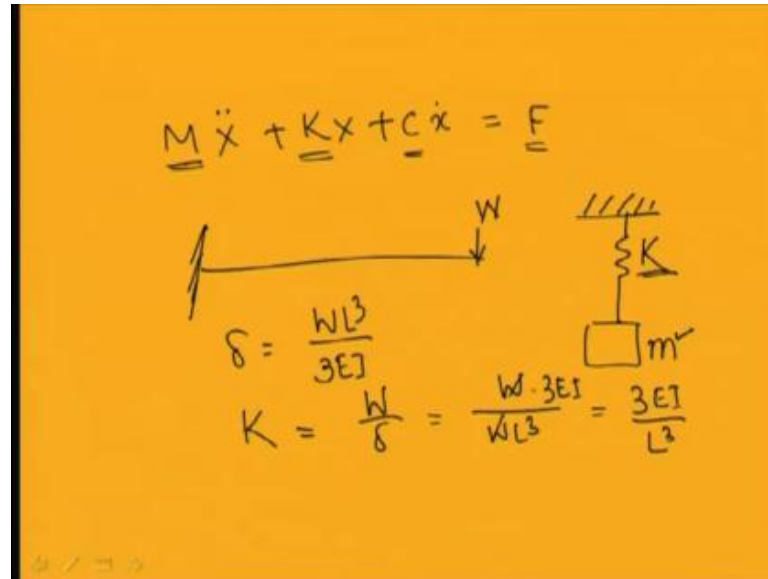 M ẍ + K x + C ẋ = F
W
K
δ = WL³/3EI
m
K = W/δ = W·3EI/WL³ = 3EI/L³